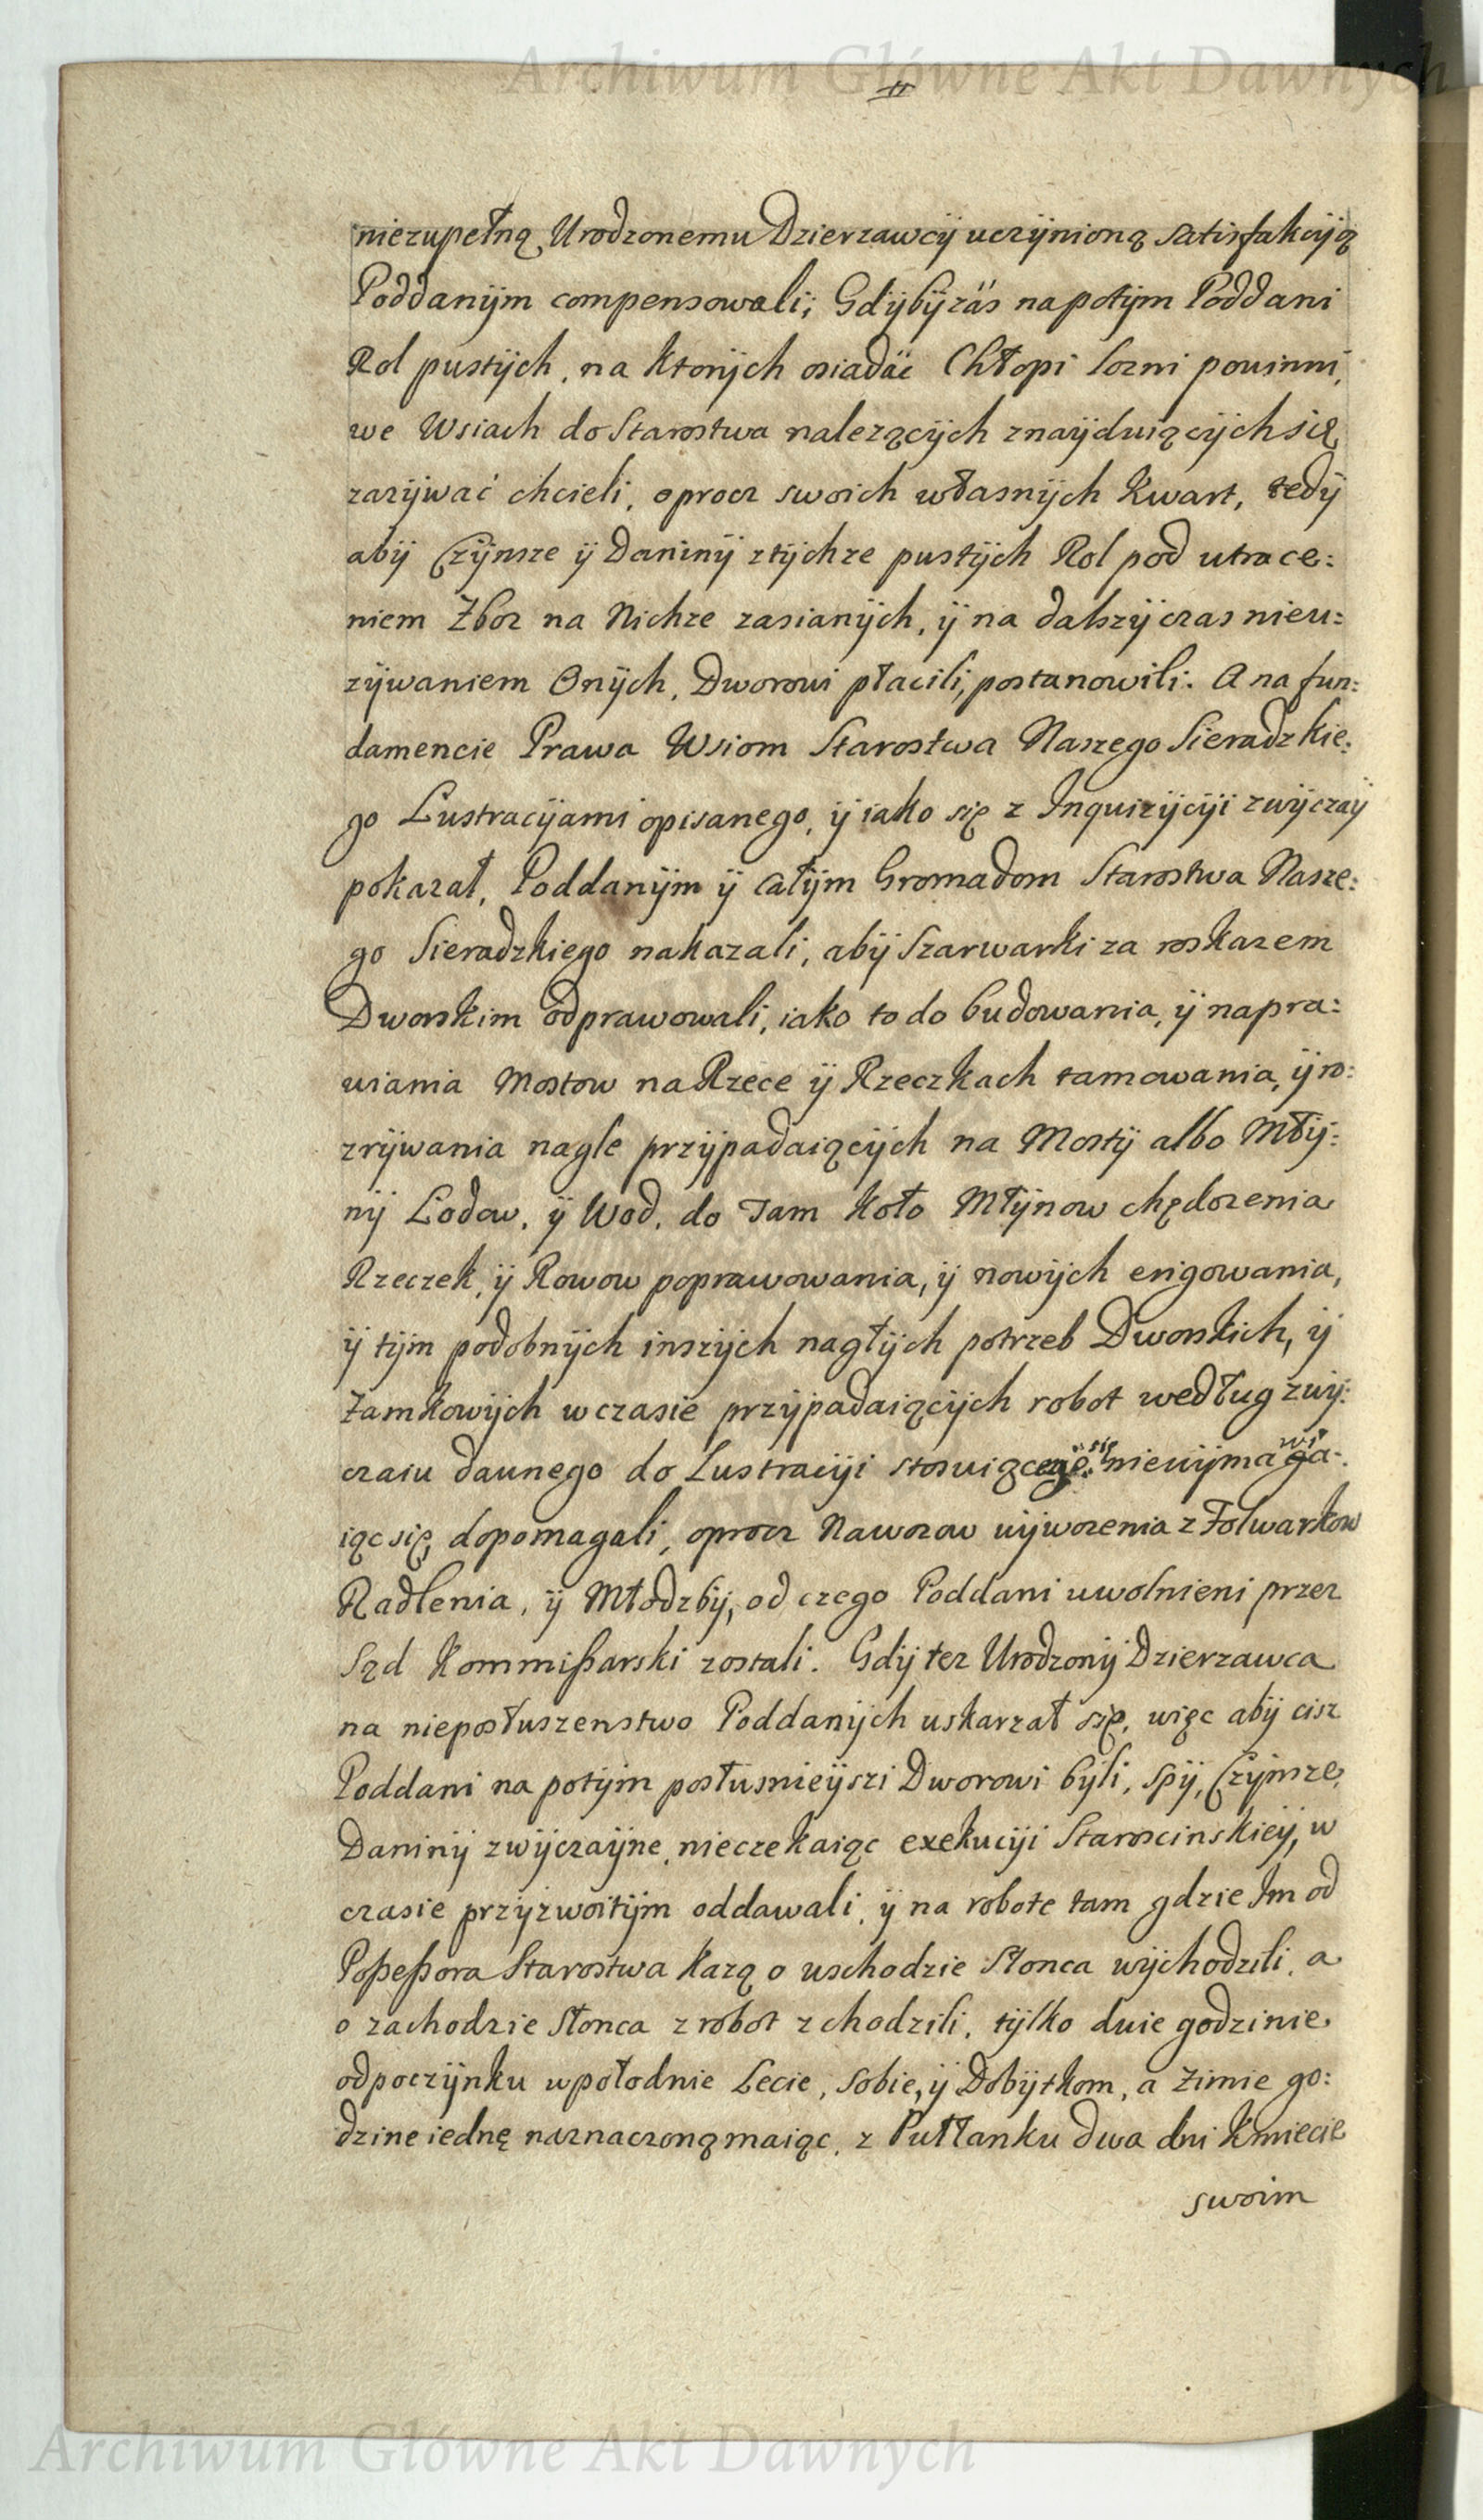 Archiwum Główne Akt Dawnych
niezupełną Urodzonemu Dzierzawcÿ uczÿnioną satisfakcÿą
Poddanÿm compensowali; Gdÿbÿ zás napotÿm Poddani
Rol pustÿch, na Ktorÿch osiadáć Chłopi lozni powinni,
we Wsiach do Starostwa nalezącÿch znaÿduiącÿch się
zazÿwać chcieli, oprocz swoich własnÿch Kwart, tedÿ
abÿ Czÿnsze ÿ Daninÿ z tÿchze pustÿch Rol pod utrace:
niem Zboz na Nichze zasianÿch, ÿ na dalszÿ czas nieu:
zÿwaniem Onÿch, Dworowi płacili, postanowili. A na fun:
damencie Prawa Wsiom Starostwa Naszego Sieradzkie:
go Lustracÿami opisanego, ÿ iako się z Inquizÿcÿi zwÿczaÿ
pokazał, Poddanÿm ÿ całÿm Gromadom Starostwa Nasze:
go Sieradzkiego nakazali, abÿ Szarwarki za roskazem
Dworskim odprawowali, iako to do budowania, ÿ napra:
wiania Mostow na Rzece ÿ Rzeczkach tamowania, ÿ ro:
zrÿwania nagle przÿpadaiącÿch na Mostÿ albo Młÿ:
nÿ Lodow, ÿ Wod, do Tam Koło Młÿnow chędozenia
Rzeczek, ÿ Rowow poprawowania, ÿ nowÿch erigowania,
ÿ tÿm podobnÿch inszÿch nagłÿch potrzeb Dworskich, ÿ
Zamkowÿch w czasie przÿpadaiącÿch robot według zwÿ:
czaiu dawnego do Lustracÿi stosuiącego się niewÿmawia:
iąc się, dopomagali, oprocz Nawozow wÿwozenia z Folwarkow
Radlenia, ÿ Młodzbÿ, od czego Poddani uwolnieni przez
Sąd Kommißarski zostali. Gdÿ tez Urodzonÿ Dzierzawca
na nieposłuszenstwo Poddanÿch uskarzał się, więc abÿ cisz
Poddani na potÿm posłusnieÿszi Dworowi bÿli, Spÿ, Czÿnsze,
Daninÿ zwÿczaÿne, nieczekaiąc exekucÿi Staroscinskieÿ, w
czasie przÿzwoitÿm oddawali, ÿ na robote tam gdzie Im od
Poßeßora Starostwa Kazą o wschodzie Słonca wÿchodzili, a
o zachodzie Słonca z robot zchodzili, tÿlko dwie godzinie
odpoczÿnku w południe Lecie, Sobie, ÿ Dobÿtkom, a Zimie go:
dzine iednę naznaczoną maiąc, z Pułłanku dwa dni Kmiecie
swoim
Archiwum Główne Akt Dawnych